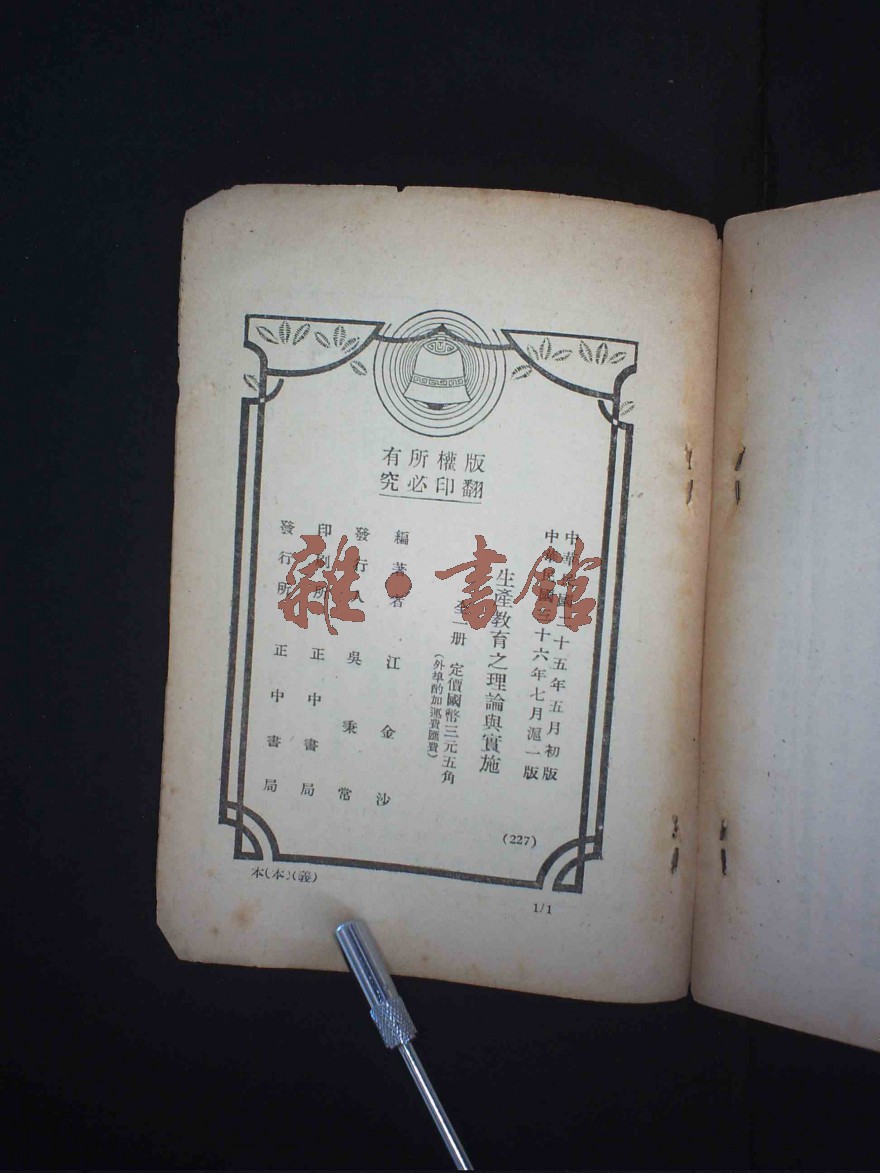 版權所有
翻印必究
中華民國二十五年五月初版
中華民國三十六年七月滬一版
生產教育之理論與實施
全一册 定價國幣三元五角
(外埠酌加運費匯費)
編著者 江金沙
發行人 吳秉常
印刷所 正中書局
發行所 正中書局
(227)
1/1
雜·書館